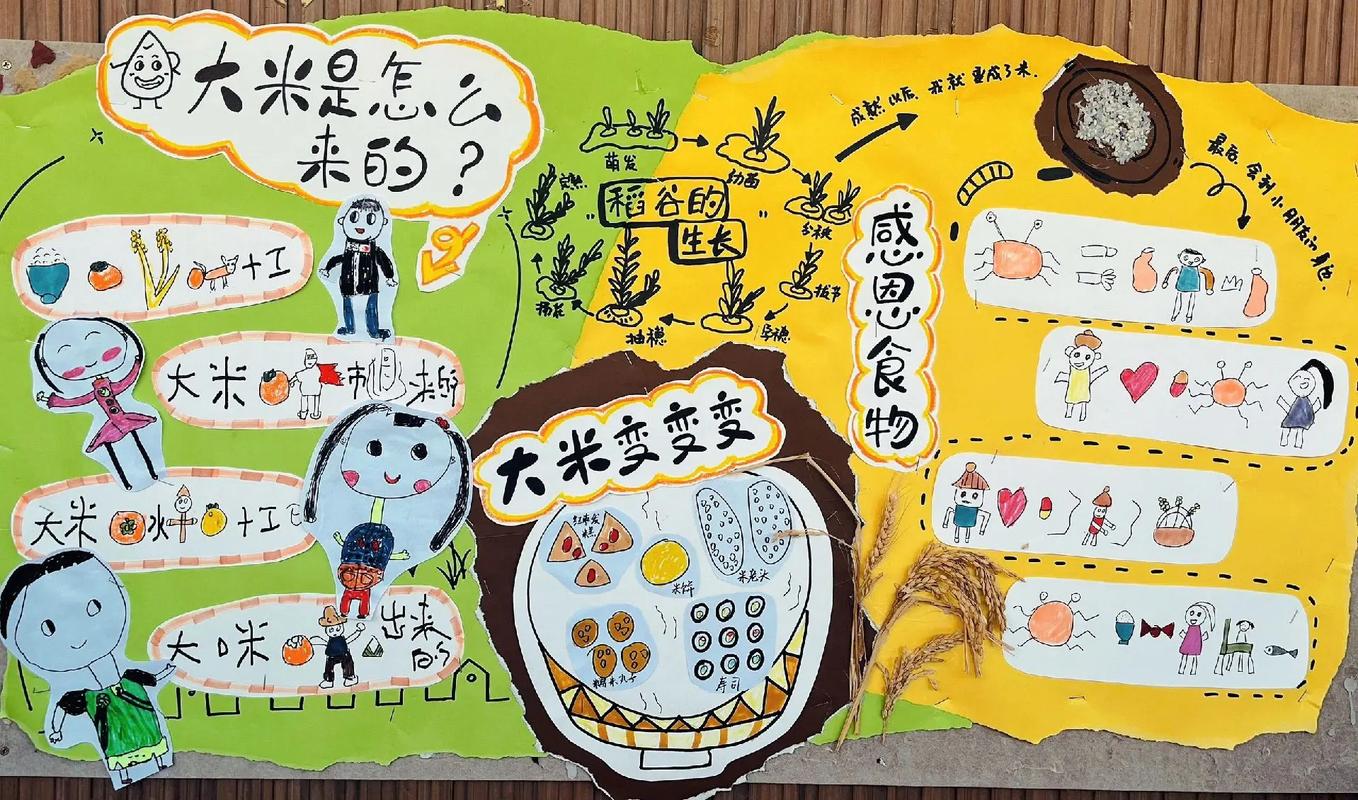 大米是怎么
来的？
十工
大米 市 来的
大米 水 十工
大口米 出来
的
萌发
幼苗
分蘖
拔节
孕穗
抽穗
扬花
完熟
"稻谷的
生长"
成熟以后，我就变成了米.
最后，会到小朋友的身边.
感恩食物
大米变变变
红枣发
糕
米饼
米老头
糯米丸子
寿司